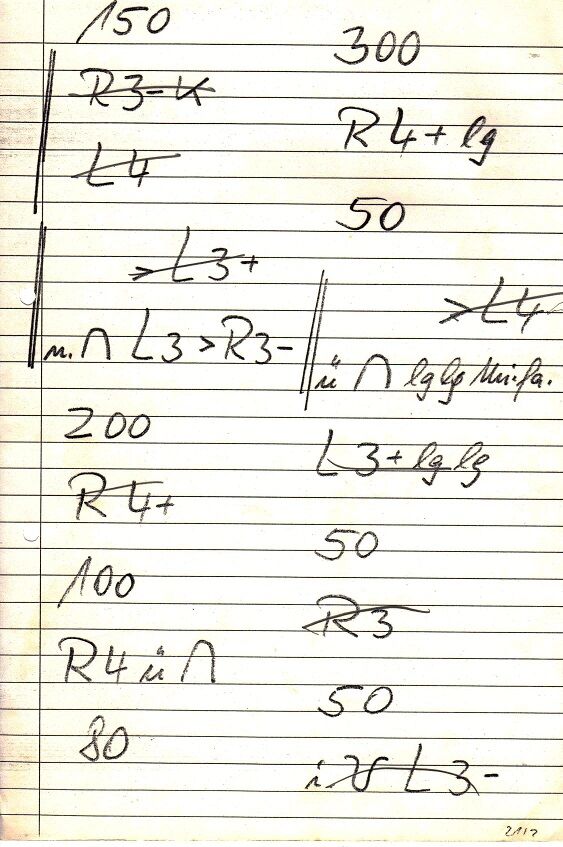 150
R3-K
L4
>L3+
n.∩ L3>R3-
200
R4+
100
R4 ü ∩
80
300
R4+ lg
50
>L4
ü ∩ lglg
L3+ lg lg
50
R3
50
L3-